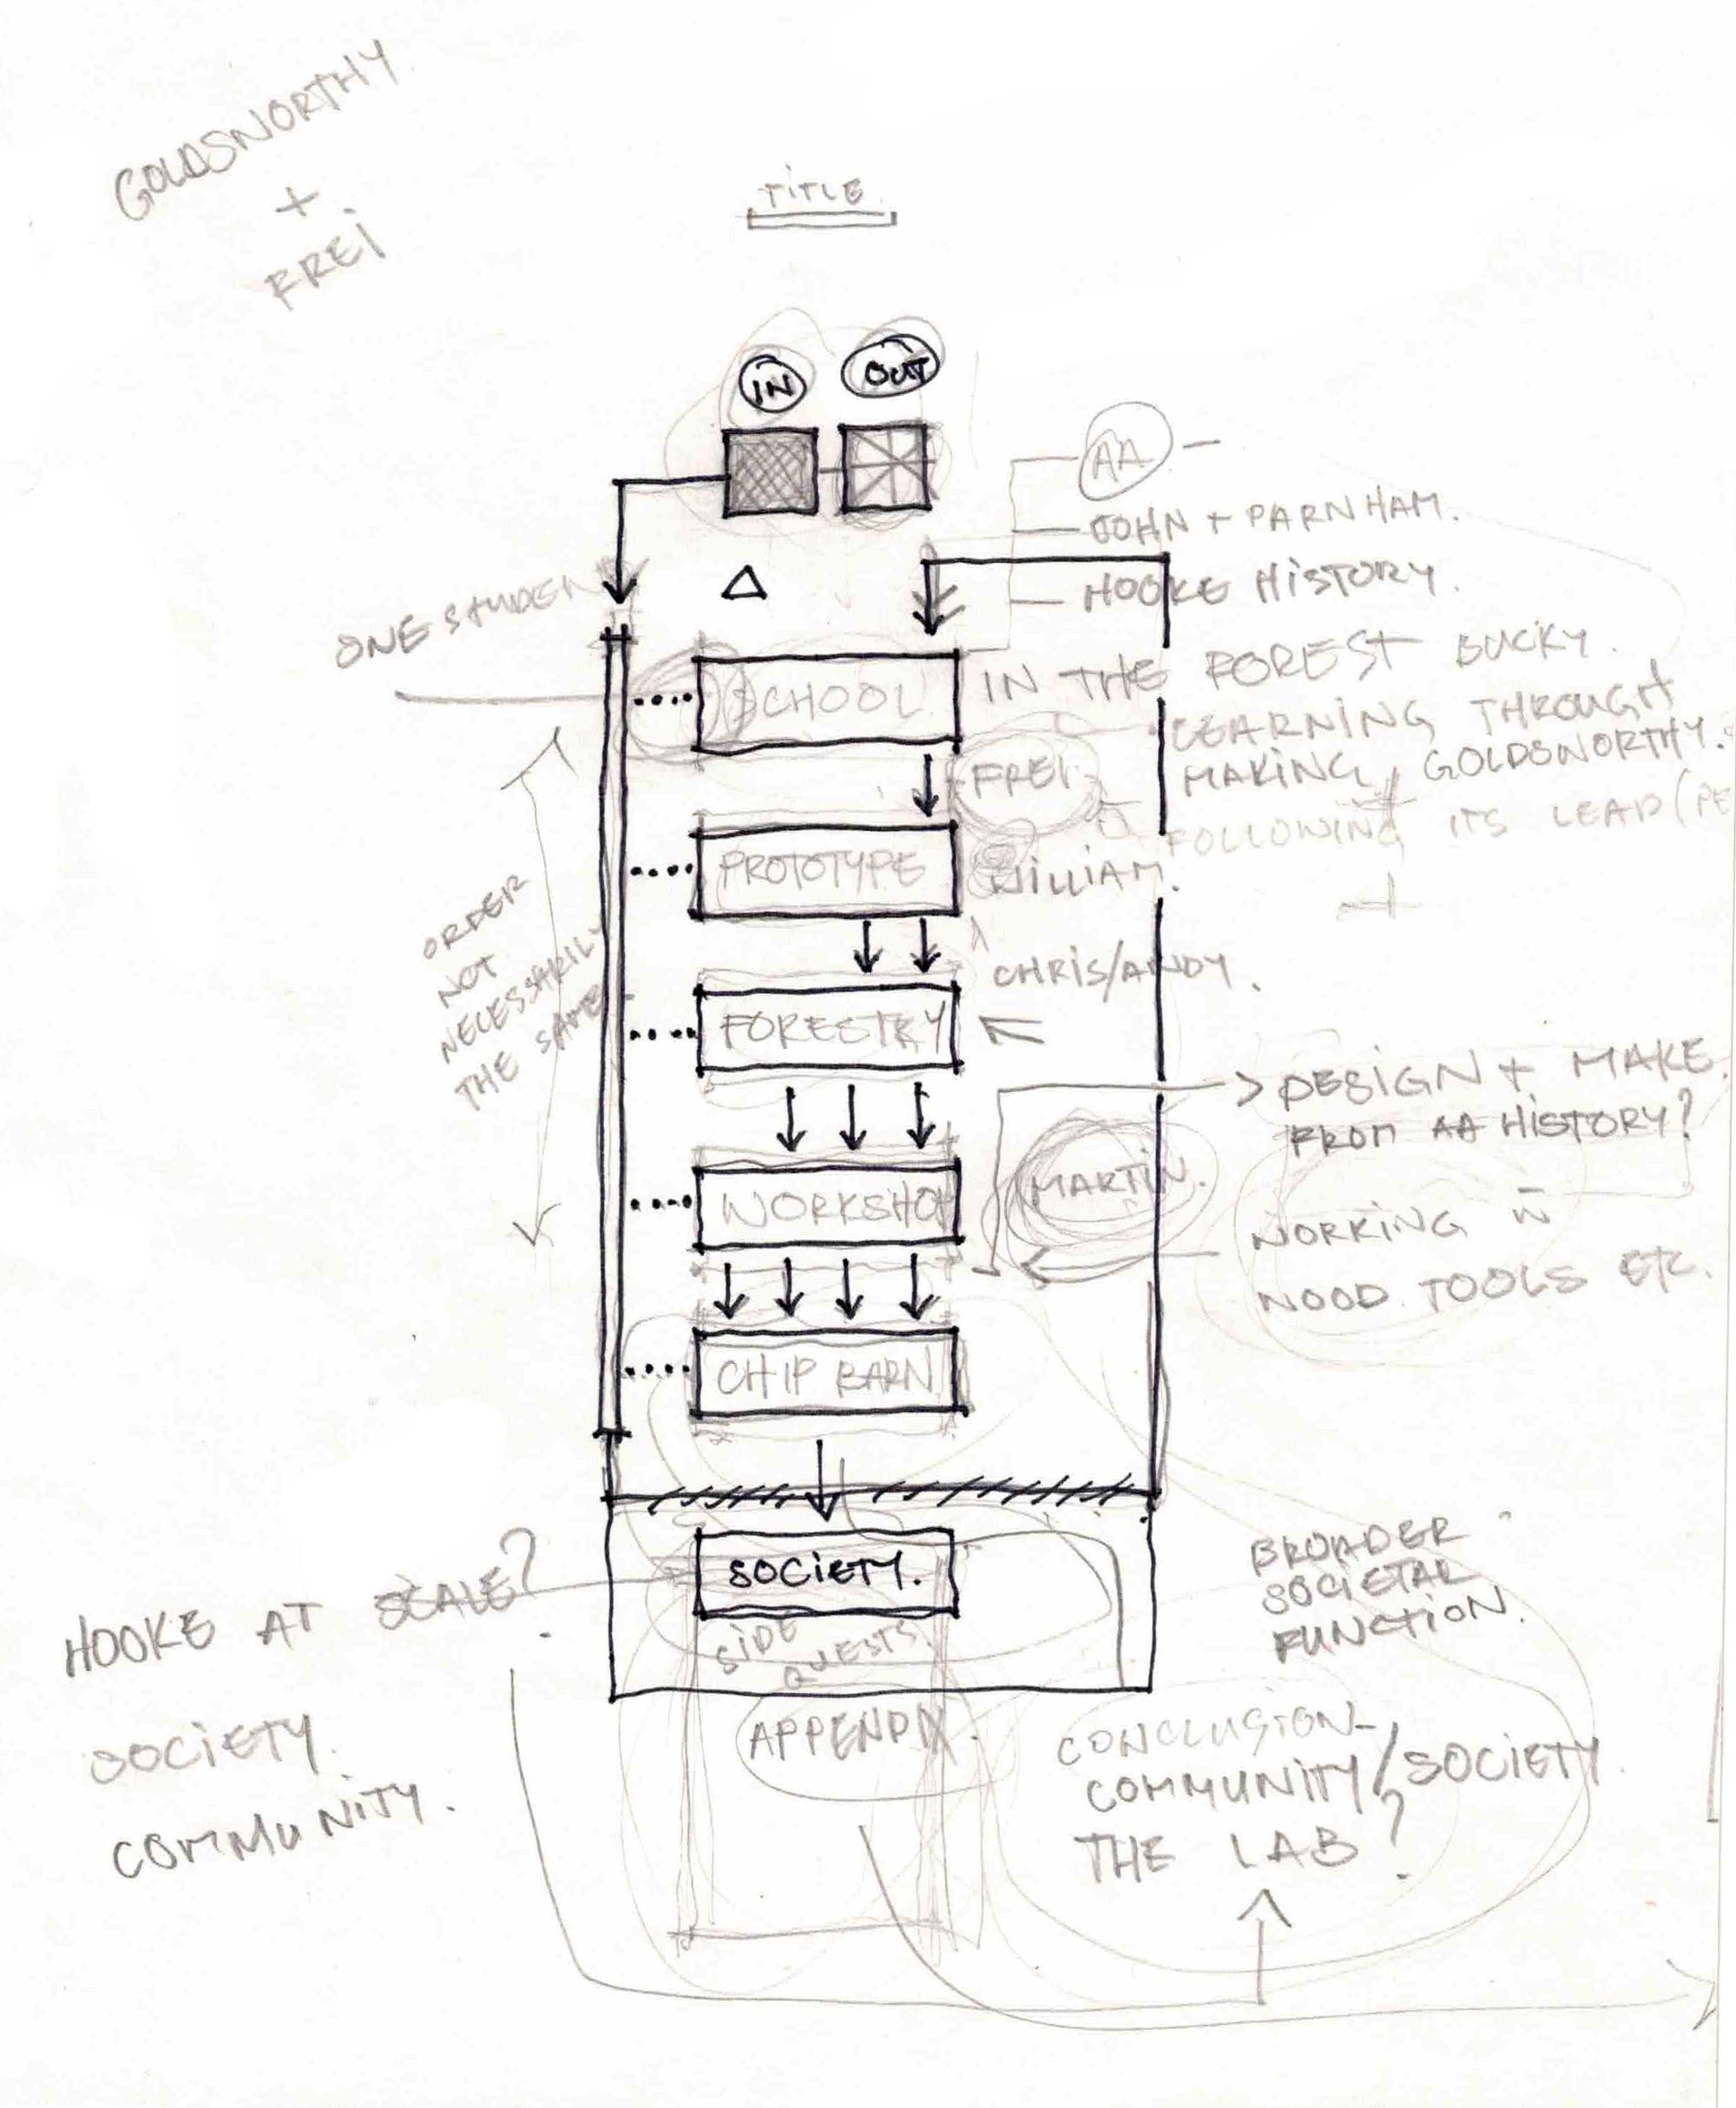 GOLDSWORTHY
+
FREI
TITLE
IN
OUT
AA
JOHN + PARNHAM.
HOOKE HISTORY.
ONE STUDENT
SCHOOL
IN THE FOREST BUCKY.
LEARNING THROUGH
MAKING, GOLDSWORTHY.
FOLLOWING ITS LEAD (PE
FREI
PROTOTYPE
WILLIAM.
+
ORDER
NOT
NECESSARILY
THE SAME
CHRIS/ANDY.
FORESTRY
DESIGN + MAKE.
FROM AA HISTORY?
WORKSHOP
MARTIN.
WORKING W
WOOD. TOOLS ETC.
CHIP BARN
SOCIETY.
SIDE
QUESTS.
HOOKE AT SCALE?
SOCIETY.
COMMUNITY.
BROADER
SOCIETAL
FUNCTION.
APPENDIX.
CONCLUSION-
COMMUNITY/SOCIETY.
THE LAB?